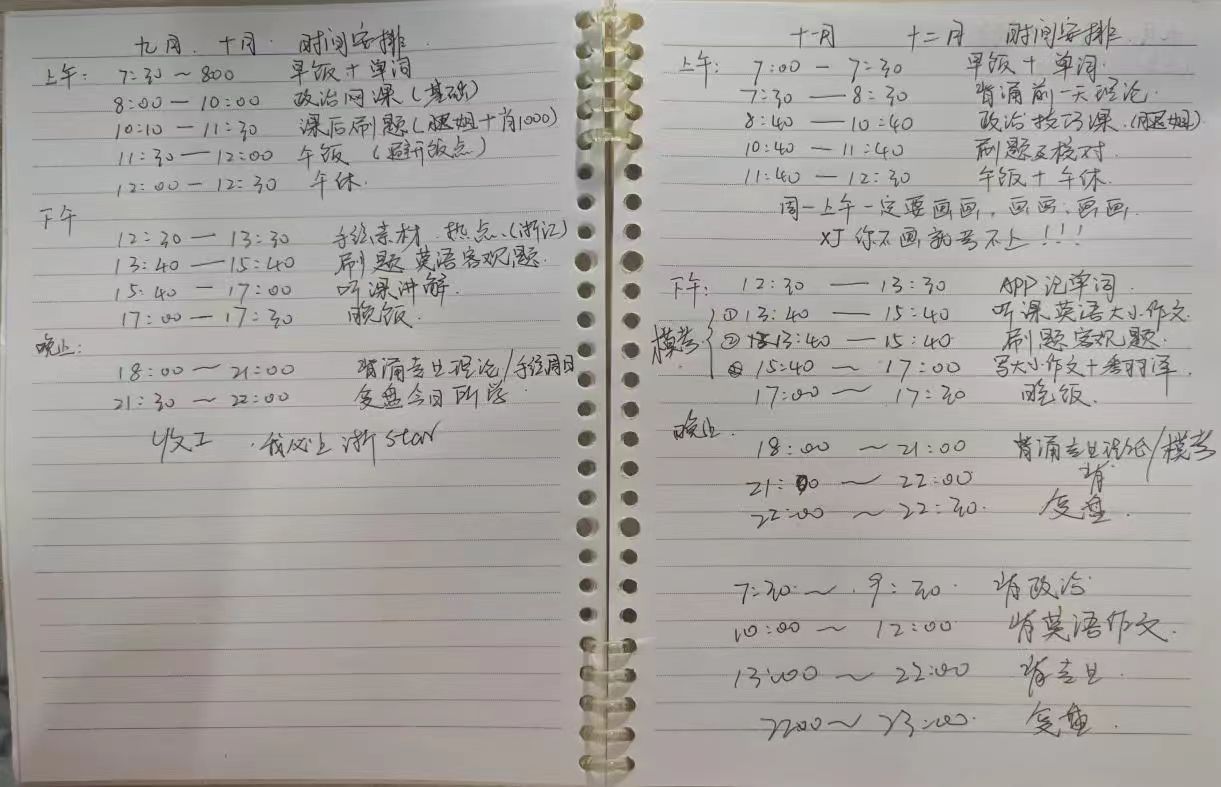 九月、十月 时间安排
上午: 7:30～800 早饭+单词
8:00—10:00 政治网课(基础)
10:10—11:30 课后刷题(腿姐+肖1000)
11:30—12:00 午饭 (避开饭点)
12:00—12:30 午休.
下午
12:30—13:30 手绘素材、热点、(浙江)
13:40—15:40 刷题 英语客观题.
15:40—17:00 听课讲解.
17:00—17:30 晚饭.
晚上:
18:00～21:00 背诵专业理论/手绘周日
21:30～22:00 复盘今日所学
收工 . 我必上浙star
十一月 十二月 时间安排.
上午: 7:00—7:30 早饭+单词.
7:30—8:30 背诵前一天理论.
8:40—10:40 政治技巧课.(腿姐)
10:40—11:40 刷题及核对.
11:40—12:30 午饭+午休.
周一上午一定要画画、画画、画画.
XJ你不画就考不上!!!
下午: 12:30—13:30 APP记单词.
①13:40—15:40 听课英语大小作文
模考 ②13:40—15:40 刷题客观题.
15:40～17:00 写大小作文+看翻译.
17:00～17:30 晚饭.
晚上.
18:00～21:00 背诵专业理论/模考
21:00～22:00 背
22:00～22:30. 复盘.
7:30～9:30. 背政治
10:00～12:00 背英语作文.
13:00～22:00 背专业.
2200～23:00. 复盘.